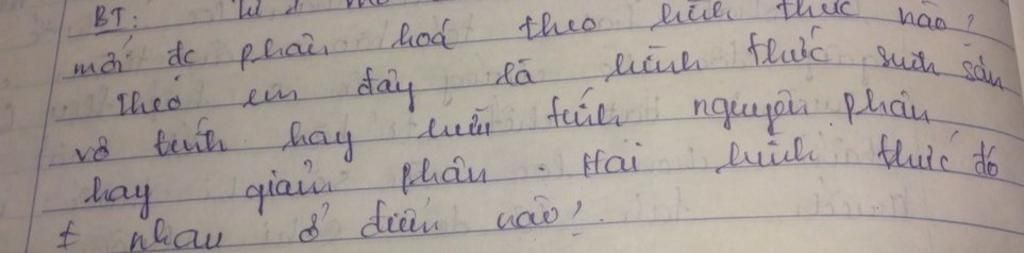 BT: Từ 1
mới đc phân hoá theo hình thức nào?
Theo em đây là hình thức sinh sản
vô tính hay hữu tính nguyên phân
hay giảm phân. Hai hình thức đó
≠ nhau ở điểm nào?